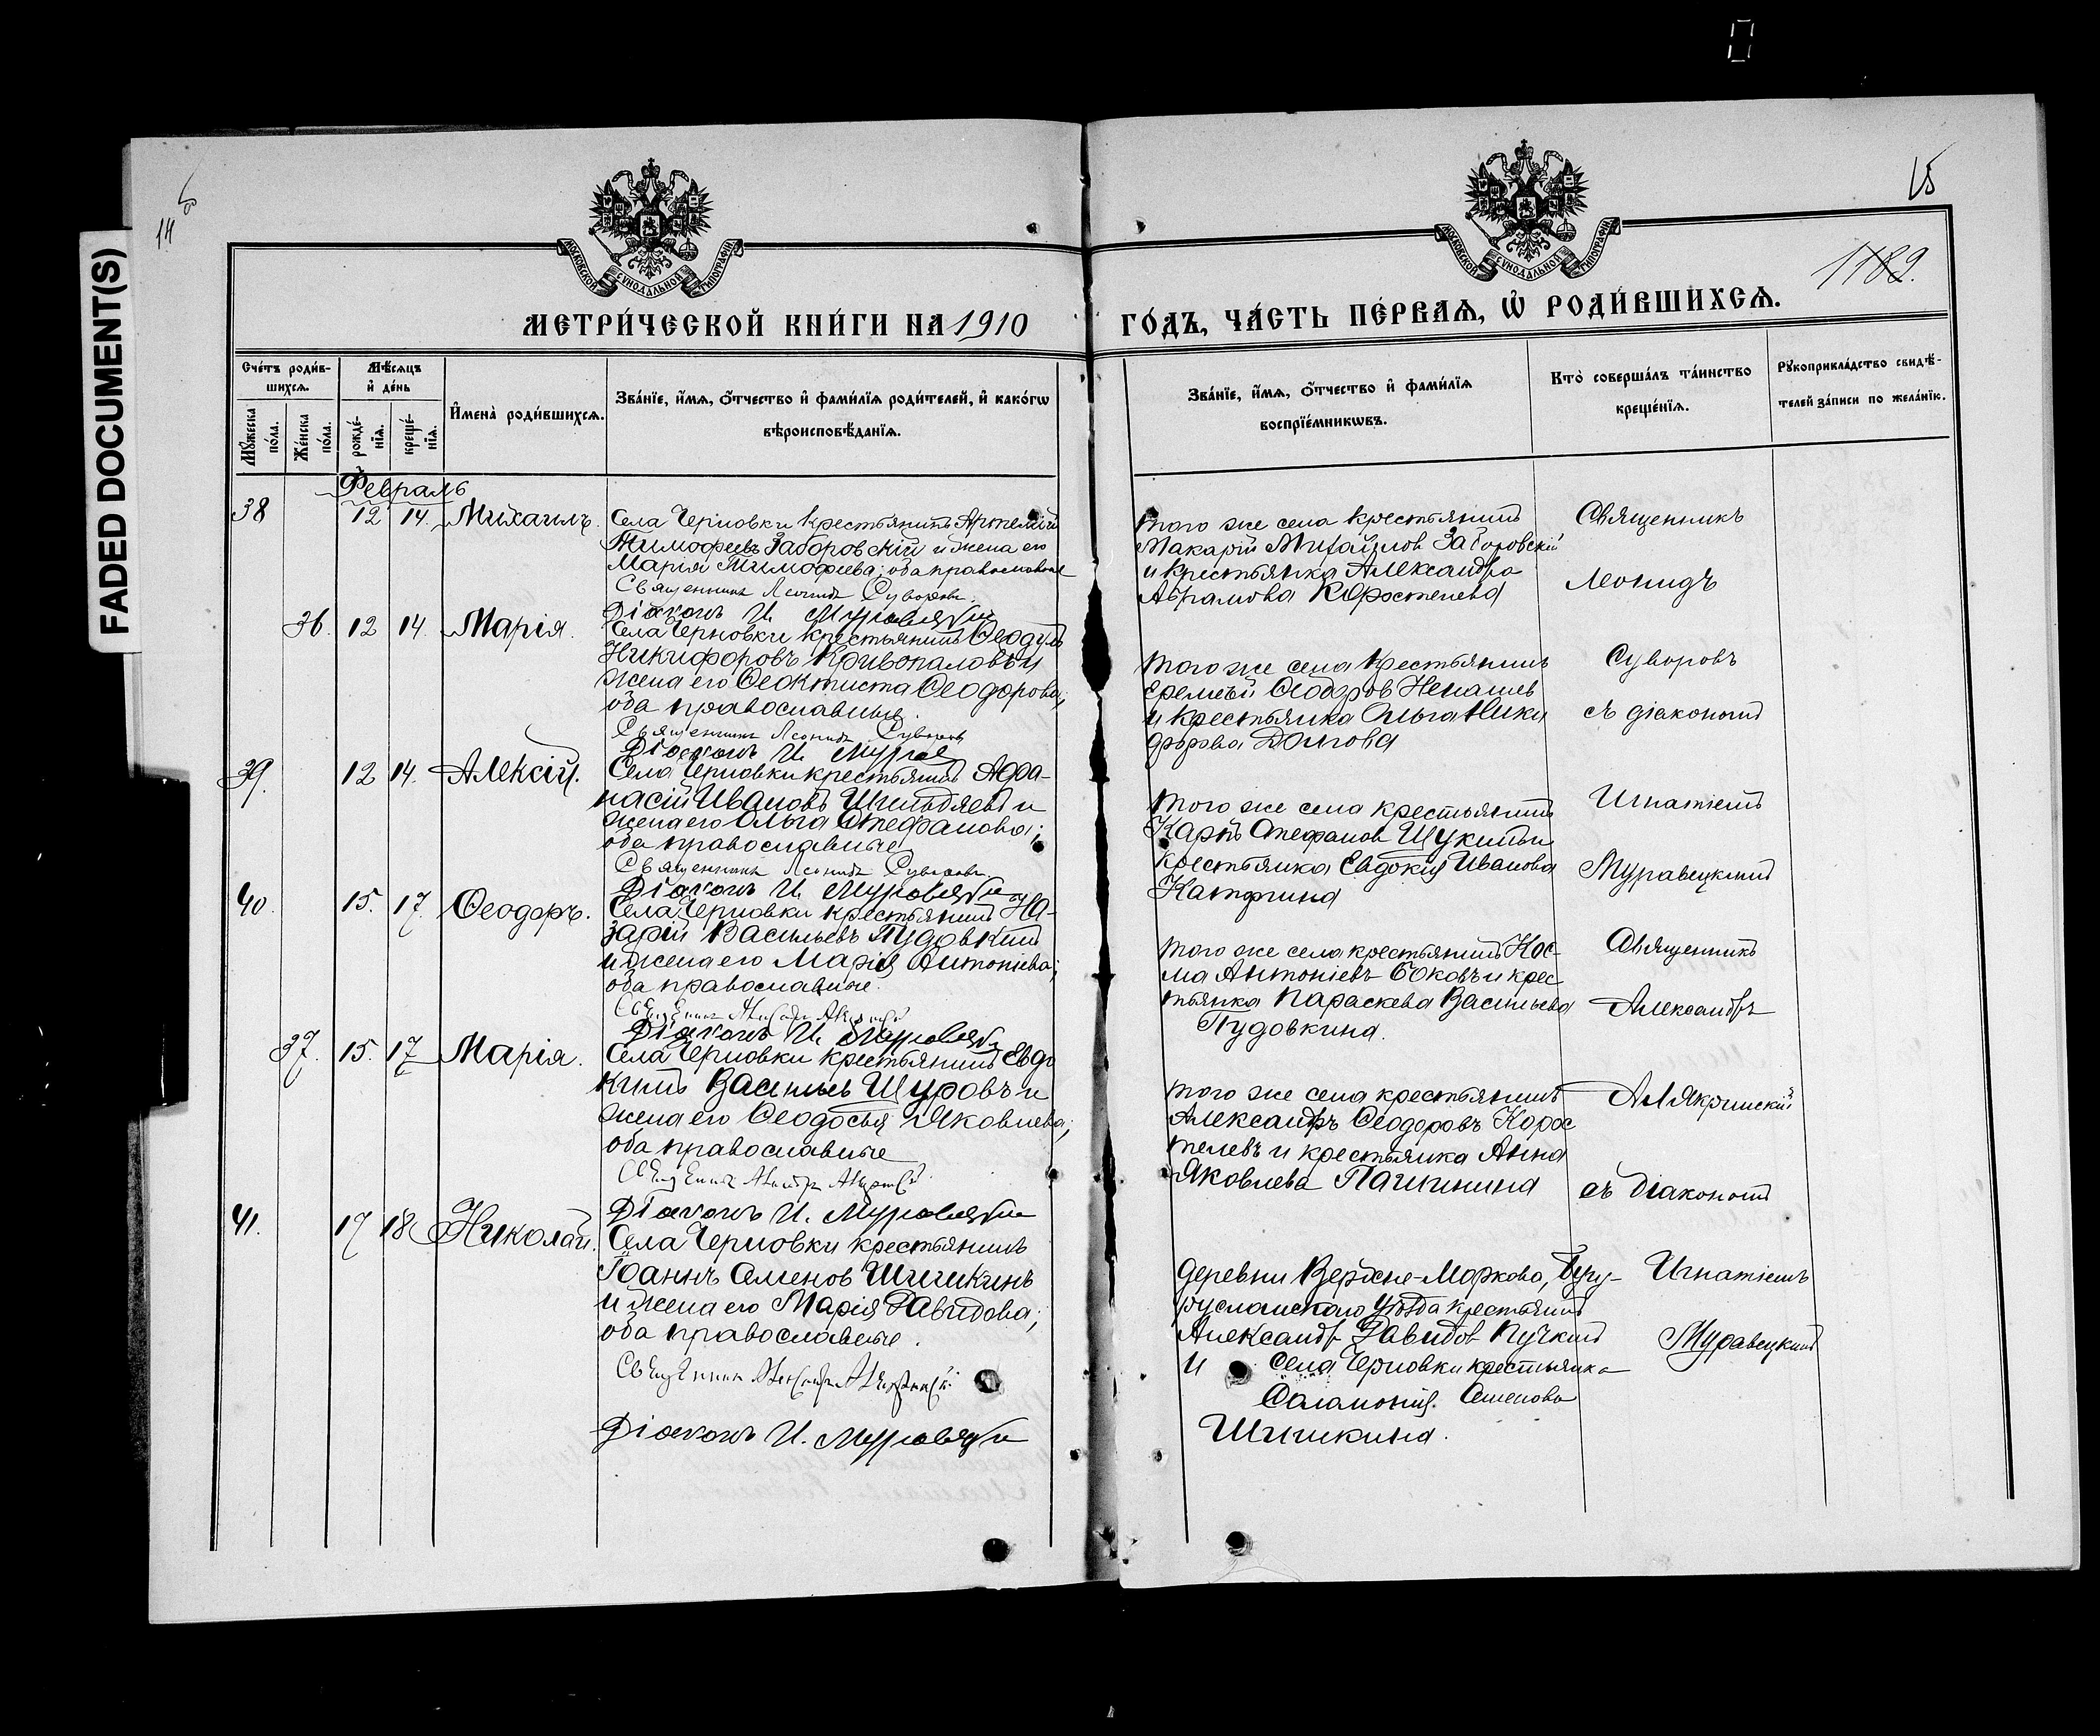 FADED DOCUMENT(S)
14
15
1189.
МОСКОВСКОЙ СѴНОДАЛЬНОЙ ТИПОГРАФІИ
МОСКОВСКОЙ СѴНОДАЛЬНОЙ ТИПОГРАФІИ
МЕТРИ́ЧЕСКОЙ КНИ́ГИ НА 1910
ГО́ДЪ, ЧА́СТЬ ПЕ́РВАѦ, Ѡ҆ РОДИ́ВШИХСѦ.
Сче́тъ роди́в-
шихсѧ.
Мꙋ́жеска
по́ла.
Же́нска
по́ла.
Мѣ́сѧцъ
и҆ де́нь
рожде́-
нїѧ.
креще́-
нїѧ.
И҆мена̀ роди́вшихсѧ.
Зва́нїе, и҆́мѧ, ѻ҆́тчество и҆ фами́лїѧ роди́телей, и҆ како́гѡ
вѣроисповѣ́данїѧ.
Зва́нїе, и҆́мѧ, ѻ҆́тчество и҆ фами́лїѧ
воспрїе́мникѡвъ.
Кто̀ соверша́лъ та́инство
креще́нїѧ.
Рꙋкоприкла́дство свидѣ́-
телей за́писи по жела́нїю.
Февраль
38
12
14.
Михаилъ.
Села Черновки крестьянинъ Артемій
Тимофеевъ Заборовскій и жена его
Марія Тимофеева; оба православные
Священникъ Леонидъ Суворовъ.
Діаконъ И. Муравецкій
того же села крестьянинъ
Макарій Михайлов Заборовскій
и крестьянка Александра
Абрамова Коростелева
Священникъ
Леонидъ
36.
12
14.
Марія.
Села Черновки крестьянинъ Ѳеодулъ
Никифоровъ Кривопаловъ и
жена его Ѳеоктиста Ѳеодорова;
оба православные.
Священникъ Леонидъ Суворовъ
Діаконъ И. Мурав
того же села крестьянинъ
Еремѣй Ѳеодоров Ненашев
и крестьянка Ольга Ники
форова Долгова
Суворовъ
съ діакономъ
39.
12
14.
Алексій.
Села Черновки крестьянинъ Афа-
насій Ивановъ Шильдяевъ и
жена его Ольга Стефанова;
оба православные
Священникъ Леонидъ Суворовъ.
Діаконъ И. Муравецкій
того же села крестьянинъ
Карпъ Стефанов Щукинъ и
крестьянка Евдокія Иванова
Игнатіемъ
Муравецкимъ
40.
15.
17.
Ѳеодоръ.
Села Черновки крестьянинъ На-
зарій Васильевъ Пудовкинъ
и жена его Марія Антоніева;
оба православные.
Діаконъ И. Муравецкій
того же села крестьянинъ Кос-
ма Антоніевъ Боковъ и крес
тьянка Параскева Васильева
Пудовкина.
Священникъ
Александръ
37.
15.
17
Марія.
Села Черновки крестьянинъ Евдо
кимъ Васильев Щуровъ и
жена его Ѳеодосья Яковлева;
оба православные
Діаконъ И. Муравецкій
того же села крестьянинъ
Александръ Ѳеодоровъ Корос
телевъ и крестьянка Анна
Яковлева Пашинина
Алякринскій
съ діакономъ
41.
17
18
Николай.
Села Черновки крестьянинъ
Іоаннъ Семенов Шишкинъ
и жена его Марія Давидова;
оба православные.
Діаконъ И. Муравецкій
деревни Верхне-Марково, Бугу-
русланскаго уѣзда крестьянинъ
Александръ Давидов Пучкинъ
и села Черновки крестьянка
Саламонія Семенова
Шишкина.
Игнатіемъ
Муравецкимъ